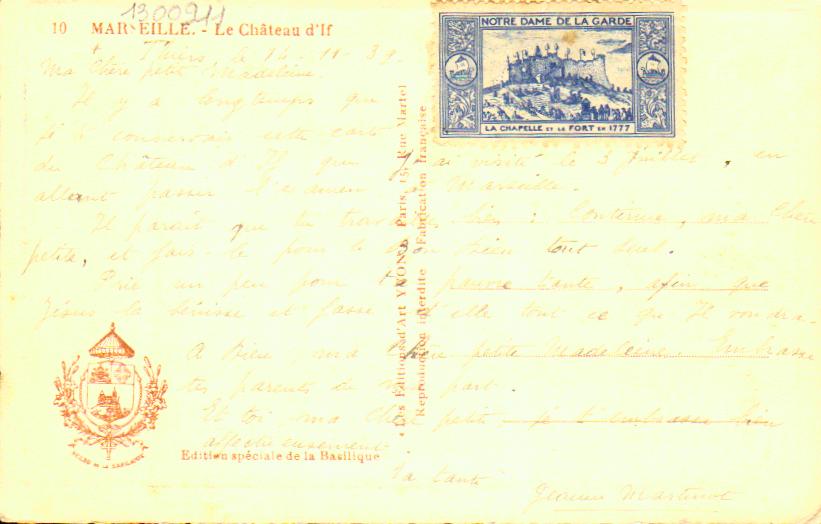 1300211
10 MARSEILLE. - Le Château d'If
NOTRE DAME DE LA GARDE
LA CHAPELLE ET LE FORT EN 1777
Thiers le 14-11-39.
Ma Chère petite Madeleine.
Il y a longtemps que
je conservais cette carte
du Château d'If que j'ai visité le 3 juillet, en
allant passer l'examen à Marseille.
Il paraît que tu travailles bien : Continue, ma Chère
petite, et fais-le pour le bon Dieu tout seul.
Prie un peu pour ta pauvre tante, afin que
Jésus la bénisse et fasse d'elle tout ce qu'Il voudra.
A Dieu ma Chère petite Madeleine. Embrasse
tes parents de ma part.
Et toi, ma Chère petite je t'embrasse bien
affectueusement
Ta tante
Martinot
Edition spéciale de la Basilique
Les Editions d'Art YVON, Paris, 15, Rue Martel
Reproduction interdite Fabrication française